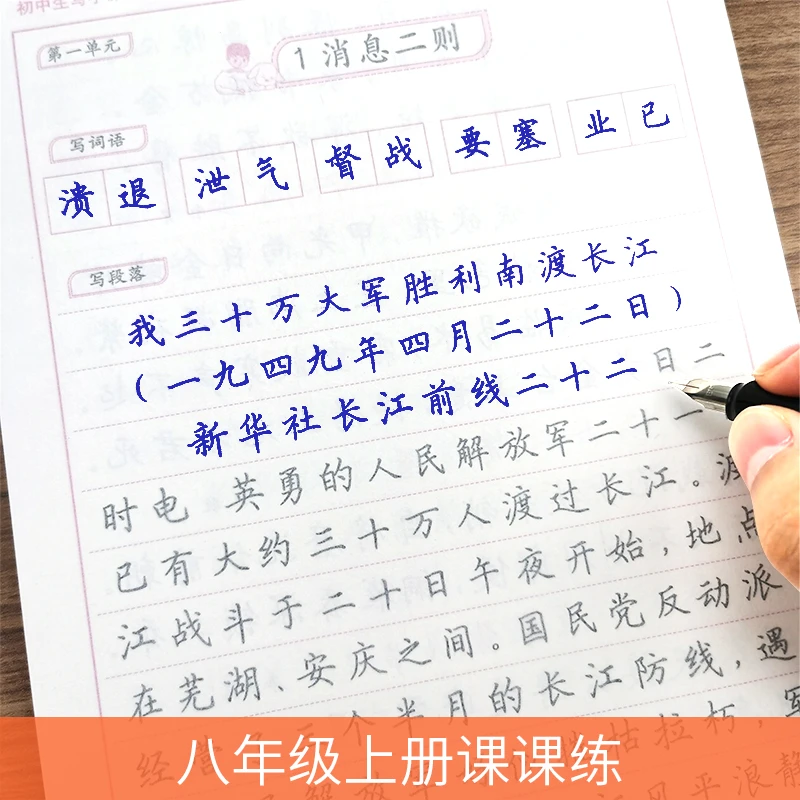 初中生写字
第一单元
1 消息二则
写词语
溃退 泄气 督战 要塞 业已
写段落
我三十万大军胜利南渡长江
(一九四九年四月二十二日)
新华社长江前线二十二日二
时电 英勇的人民解放军二十一
已有大约三十万人渡过长江。渡
江战斗于二十日午夜开始,地点
在芜湖、安庆之间。国民党反动派
经营了三个半月的长江防线,遇
枯拉朽,军
风平浪静
八年级上册课课练